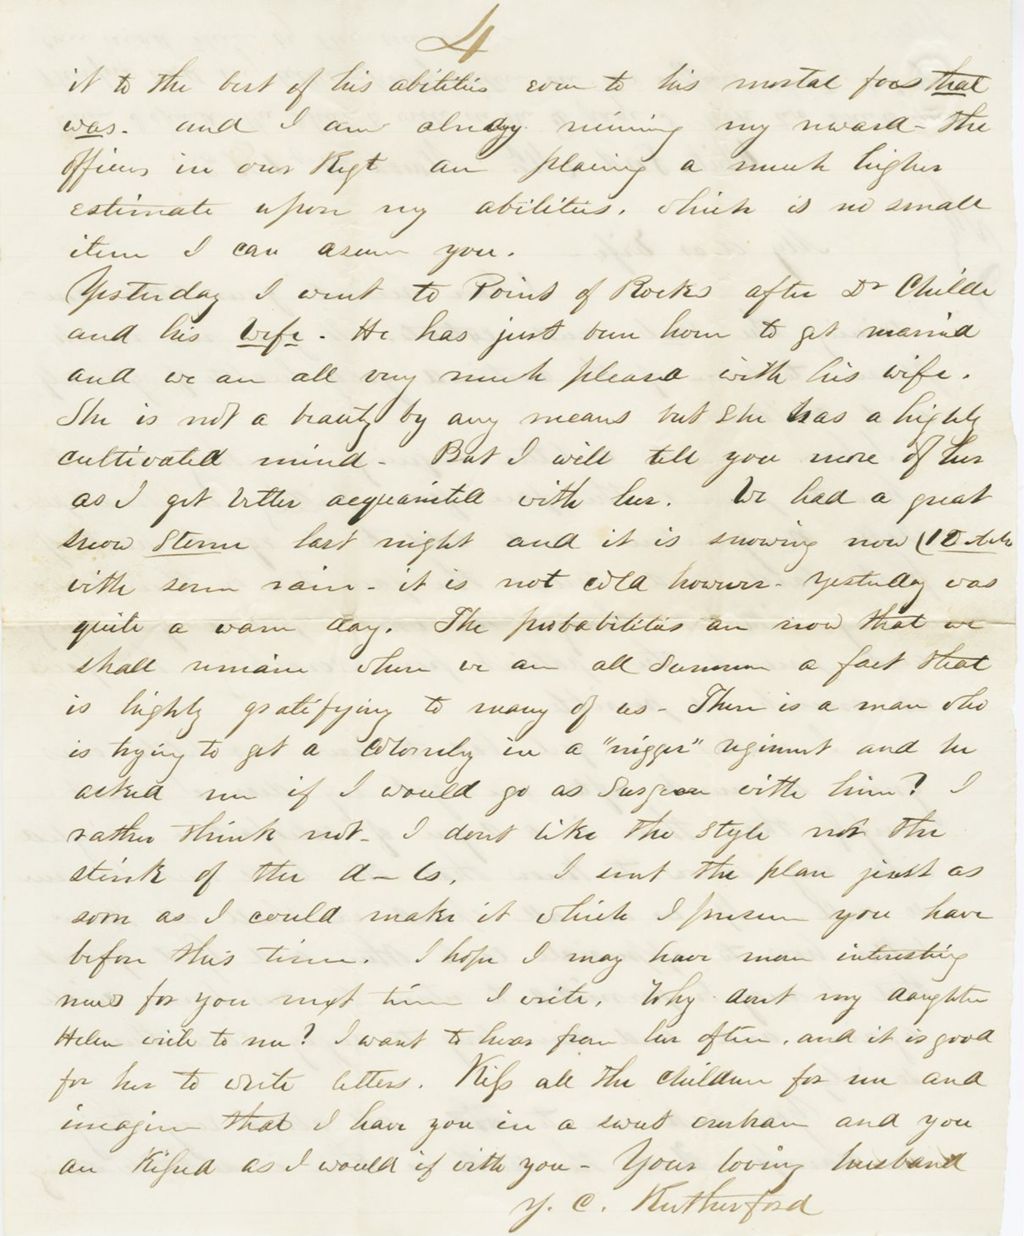 4
it to the best of his abilities even to his mortal foes that
was. and I am already reining my reward - the
officers in our Regt are placing a much higher
estimate upon my abilities, which is no small
item I can assure you.
Yesterday I went to Point of Rocks after Dr Childe
and his Wife. He has just been home to get married
and we are all very much pleased with his wife.
She is not a beauty by any means but She has a highly
cultivated mind - But I will tell you more of her
as I get better acquainted with her. We had a great
snow Storm last night and it is snowing now (12
with some rain - it is not cold however - Yesterday was
quite a warm day. The probabilities are now that we
shall remain where we are all Summer a fact that
is highly gratifying to many of us - There is a man who
is trying to get a Colonelcy in a "nigger" regiment and he
asked me if I would go as Surgeon with him? I
rather think not - I dont like the style nor the
stink of the d—ls. I sent the plan just as
soon as I could make it which I presume you have
before this time. I hope I may have more interesting
news for you next time I write. Why dont my daughter
Helen write to me? I want to hear from her often, and it is good
for her to write letters. Kiss all the children for me and
imagine that I have you in a sweet embrace and you
are Kissed as I would if with you - Your loving husband
J. C. Rutherford